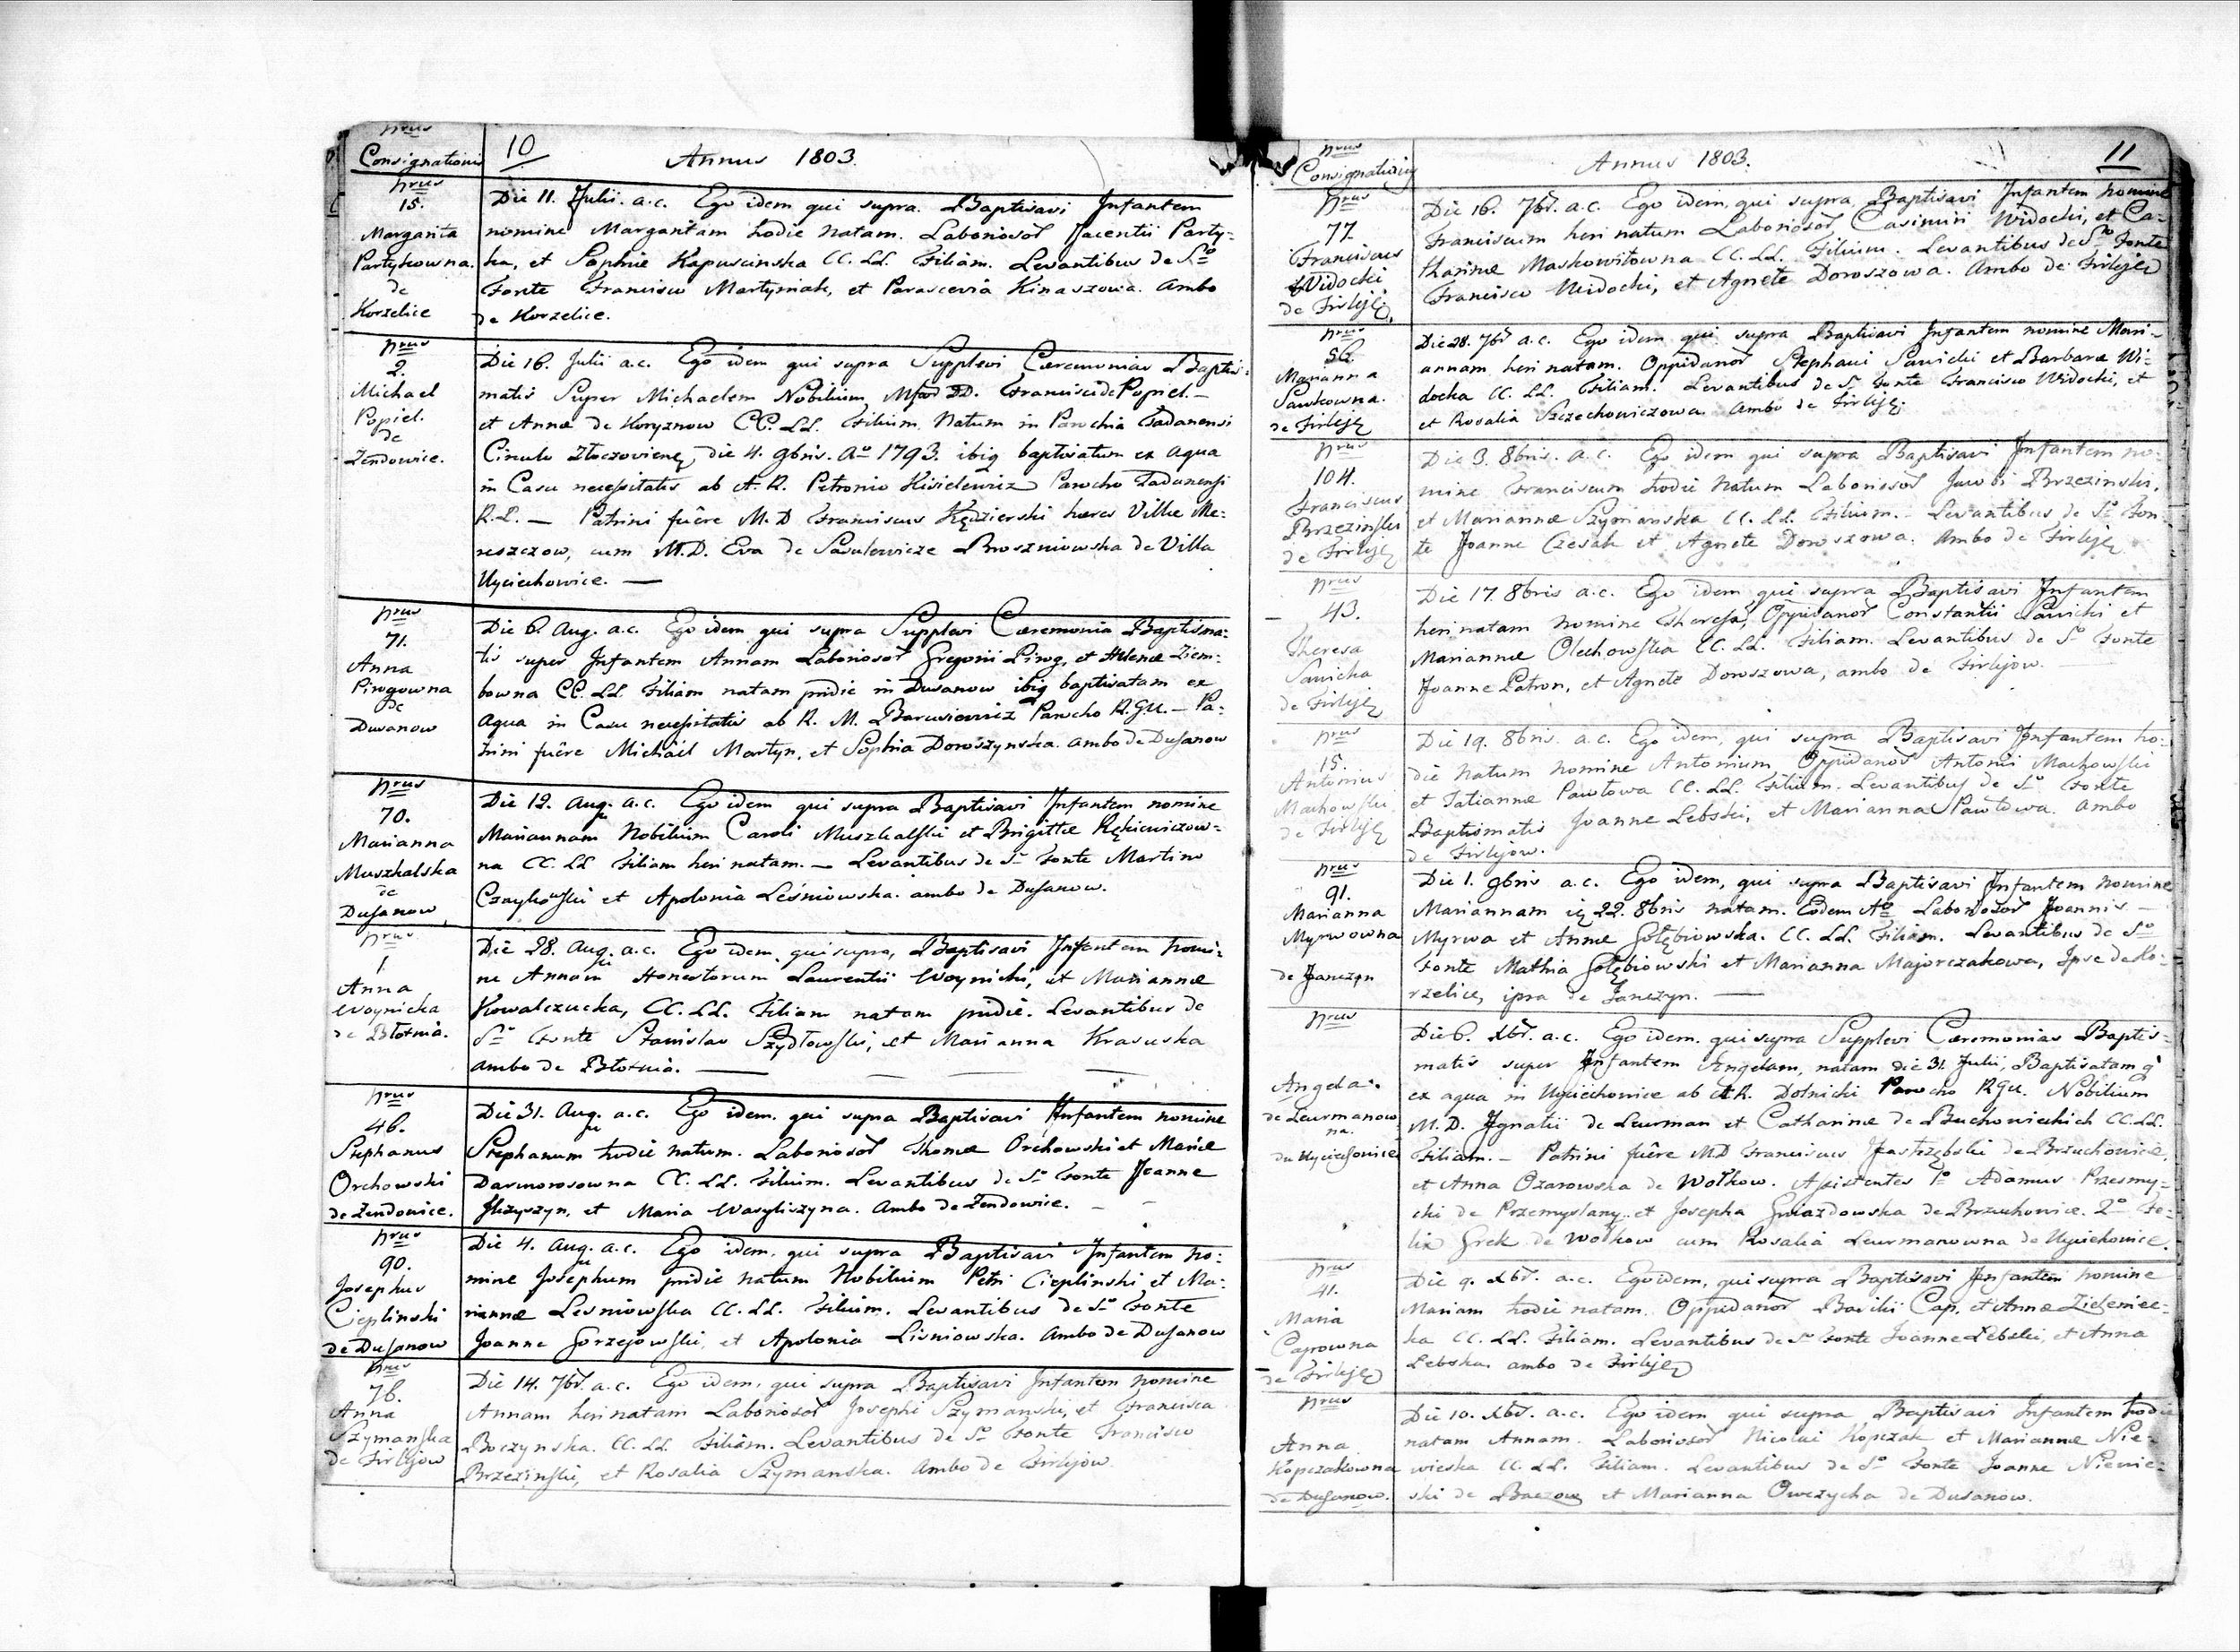 nrus
Consignationis
10
Annus 1803.
nrus
15.
Margarita
Partykowna
de
Korzelice
Die 11. Julii. a.c. Ego idem qui supra. Baptisavi Infantem
nomine Margaritam hodie natam. Laboriosor Jacentii Party=
ka, et Sophiæ Kapuscinska CC. LL. Filiam. Levantibus de So
Fonte Francisco Martyniak, et Parascevia Kinaszowa. Ambo
de Korzelice.
nrus
2.
Michael
Popiel.
de
Żendowice.
Die 16. Julii a.c. Ego idem qui supra Supplevi Cæremonias Baptis=
matis Super Michaelem Nobilium DD. Francisci de Popiel. –
et Annæ de Koryznow CC. LL. Filium. Natum in Parochia Tadanensi
Circulo Złoczoviensi, die 4. 9bris. Ao 1793. ibiq baptisatum ex aqua
in Casu necessitatis ab A. R. Petronio Kisielewicz Parocho Tadanensi
R.L. — Patrini fuêre M. D Franciscus Kędzierski hæres Villæ Me=
reszczow, cum M.D. Eva de Sawlewicze Broszniowska de Villa
Uyciechowice. —
nrus
71.
Anna
Pirogowna
de
Dusanow
Die 6. Aug. a.c. Ego idem qui supra Supplevi Cæremonia Baptisma=
tis super Infantem Annam Laboriosor Gregorii Pirog, et Helenæ Ziem=
bowna CC. LL. Filiam natam pridie in Dusanow ibiq baptisatam ex
aqua in Casu necessitatis ab R. M. Barusiewicz Parocho R.G.U. – Pa=
trini fuêre Michäel Martyn, et Sophia Doroszynska. ambo de Dusanow
nrus
70.
Marianna
Muszkalska
de
Dusanow
Die 12. Aug. a.c. Ego idem qui supra Baptisavi Infantem nomine
Mariannam Nobilium Caroli Muszkalski et Brigittæ Rękiewiczow=
na CC. LL Filiam heri natam. – Levantibus de So Fonte Martino
Czaykowski et Apolonia Leśniowska. ambo de Dusanow.
nrus
1.
Anna
Woynicka
de Błotnia.
Die 28. Aug. a.c. Ego idem, qui supra, Baptisavi Infantem nomi=
ne Annam Honestorum Laurentii Woynicki, et Mariannæ
Kowalczucka, CC. LL. Filiam natam pridie. Levantibus de
So Fonte Stanislao Szydłowski, et Marianna Krasuska
ambo de Błotnia. —
nrus
46.
Stephanus
Orchowski
de Żendowice.
Die 31. Aug. a.c. Ego idem. qui supra Baptisavi Infantem nomine
Stephanum hodie natum. Laboriosor Thomæ Orchowski et Mariæ
Darmorosowna CC. LL. Filium. Levantibus de So Fonte Joanne
et Maria Wasyliszyna. Ambo de Żendowice. –
nrus
90.
Josephus
Cieplinski
de Dusanow
Die 4. Aug. a.c. Ego idem, qui supra Baptisavi Infantem no=
mine Josephum pridie natum Nobilium Petri Cieplinski et Ma=
riannæ Lesniowska CC. LL. Filium. Levantibus de So Fonte
Joanne Gorzejowski, et Apolonia Lisniowska. Ambo de Dusanow
nrus
76.
Anna
Szymanska
de Firlejow
Die 14. 7br. a.c. Ego idem, qui supra Baptisavi Infantem nomine
Annam heri natam Laboriosor Josephi Szymanski, et Francisca
Boczynska. CC. LL. Filiam. Levantibus de So Fonte Francisco
Brzezinski, et Rosalia Szymanska. Ambo de Firlejow
nrus
Consignationis
Annus 1803.
11
nrus
77.
Franciscus
Widocki
de Firleje.
Die 16. 7br. a.c. Ego idem, qui supra Baptisavi Infantem nomine
Franciscum heri natum Laboriosor, Casimiri Widocki, et Ca=
tharinæ Maskowitowna CC. LL. Filium. Levantibus de So Fonte
Francisco Widocki, et Agnete Doroszowa. Ambo de Firleje
nrus
56.
Marianna
Sawkowna.
de Firleje
Die 28. 7br a.c. Ego idem qui supra Baptisavi Infantem nomine Mari=
annam heri natam. Oppidanor Stephani Sawicki et Barbaræ Wi=
docka CC. LL. Filiam. Levantibus de So Fonte Francisco Widocki, et
et Rosalia Szczechowiczowa. Ambo de Firleje.
nrus
104.
Franciscus
Brzezinski
de Firleje
Die 3. 8bris. a.c. Ego idem qui supra Baptisavi Infantem no=
mine Franciscum hodie Natum Laboriosor Jacobi Brzezinski,
et Mariannæ Szymanska CC. LL. Filium. – Levantibus de So Fon=
te Joanne Czesak et Agnete Doroszowa. Ambo de Firleje
nrus
43.
Theresa
Sawicka
de Firleje
Die 17. 8bris a.c. Ego idem qui supra Baptisavi Infantem
heri natam nomine Theresa, Oppidanor Constantii Sawicki et
Mariannæ Olechowska CC. LL. Filiam. Levantibus de So Fonte
Joanne Patron, et Agnete Doroszowa, ambo de Firlejow.
nrus
15.
Antonius
Machowski
de Firleje
Die 19. 8bris. a.c. Ego idem, qui supra Baptisavi Infantem ho=
die Natum nomine Antonium Oppidanor Antonii Machowski
et Tatiannæ Pawłowa CC. LL. Filium. Levantibus de So Fonte
Baptismatis Joanne Lebski, et Marianna Pawłowa. Ambo
de Firlejow.
nrus
91.
Marianna
Myrwowna
de Janczyn
Die 1. 9bris a.c. Ego idem, qui supra Baptisavi Infantem nomine
Mariannam 22. 8bris natam. Eodem Ao Laboriosor Joannis –
Myrwa et Annæ Gołębiowska. CC. LL. Filiam. Levantibus de So
Fonte Mathia Gołębiowski et Marianna Majorczakowa, Ipse de Ko=
rzelice, ipsa de Janczyn. —
nrus
Angela
de Leurmanow
na.
de Uyciechowice
Die 6. Xbr. a.c. Ego idem. qui supra Supplevi Cæremonias Baptis=
matis super Infantem Angelam, natam die 31. Julii, Baptisatam q
ex aqua in Uyciechowice ab A.R. Dolnicki Parocho RGU. Nobilium
M.D. Ignatii de Leurman et Catharinæ de Buchowieckich CC. LL.
Filiam. – Patrini fuêre MD Franciscus Jastrzębski de Brzuchowice,
et Anna Ozarowska de Wołkow. Assistentes 1o Adamus Przesmy=
cki de Przemyslany et Josepha Gwiazdowska de Brzuchowice. 2o Fe=
lix Grek de Wołkow cum Rosalia Leurmanowna de Uyciechowice.
nrus
41.
Maria
Capowna
de Firleje
Die 9. Xbr. a.c. Ego idem, qui supra Baptisavi Infantem nomine
Mariam hodie natam. Oppidanor Basilii Cap, et Annæ Zieleniec=
ka CC. LL. Filiam. Levantibus de So Fonte Joanne Lebski, et Anna
Lebska. ambo de Firleje
nrus
Anna
Kopczakowna
de Dusanow.
Die 10. Xbr. a.c. Ego idem qui supra Baptisavi Infantem hodie
natam Annam. Laboriosor Nicolai Kopczak et Mariannæ Nie=
wieska CC. LL. Filiam. Levantibus de So Fonte Joanne Niewie=
ski de et Marianna Owczycha de Dusanow.